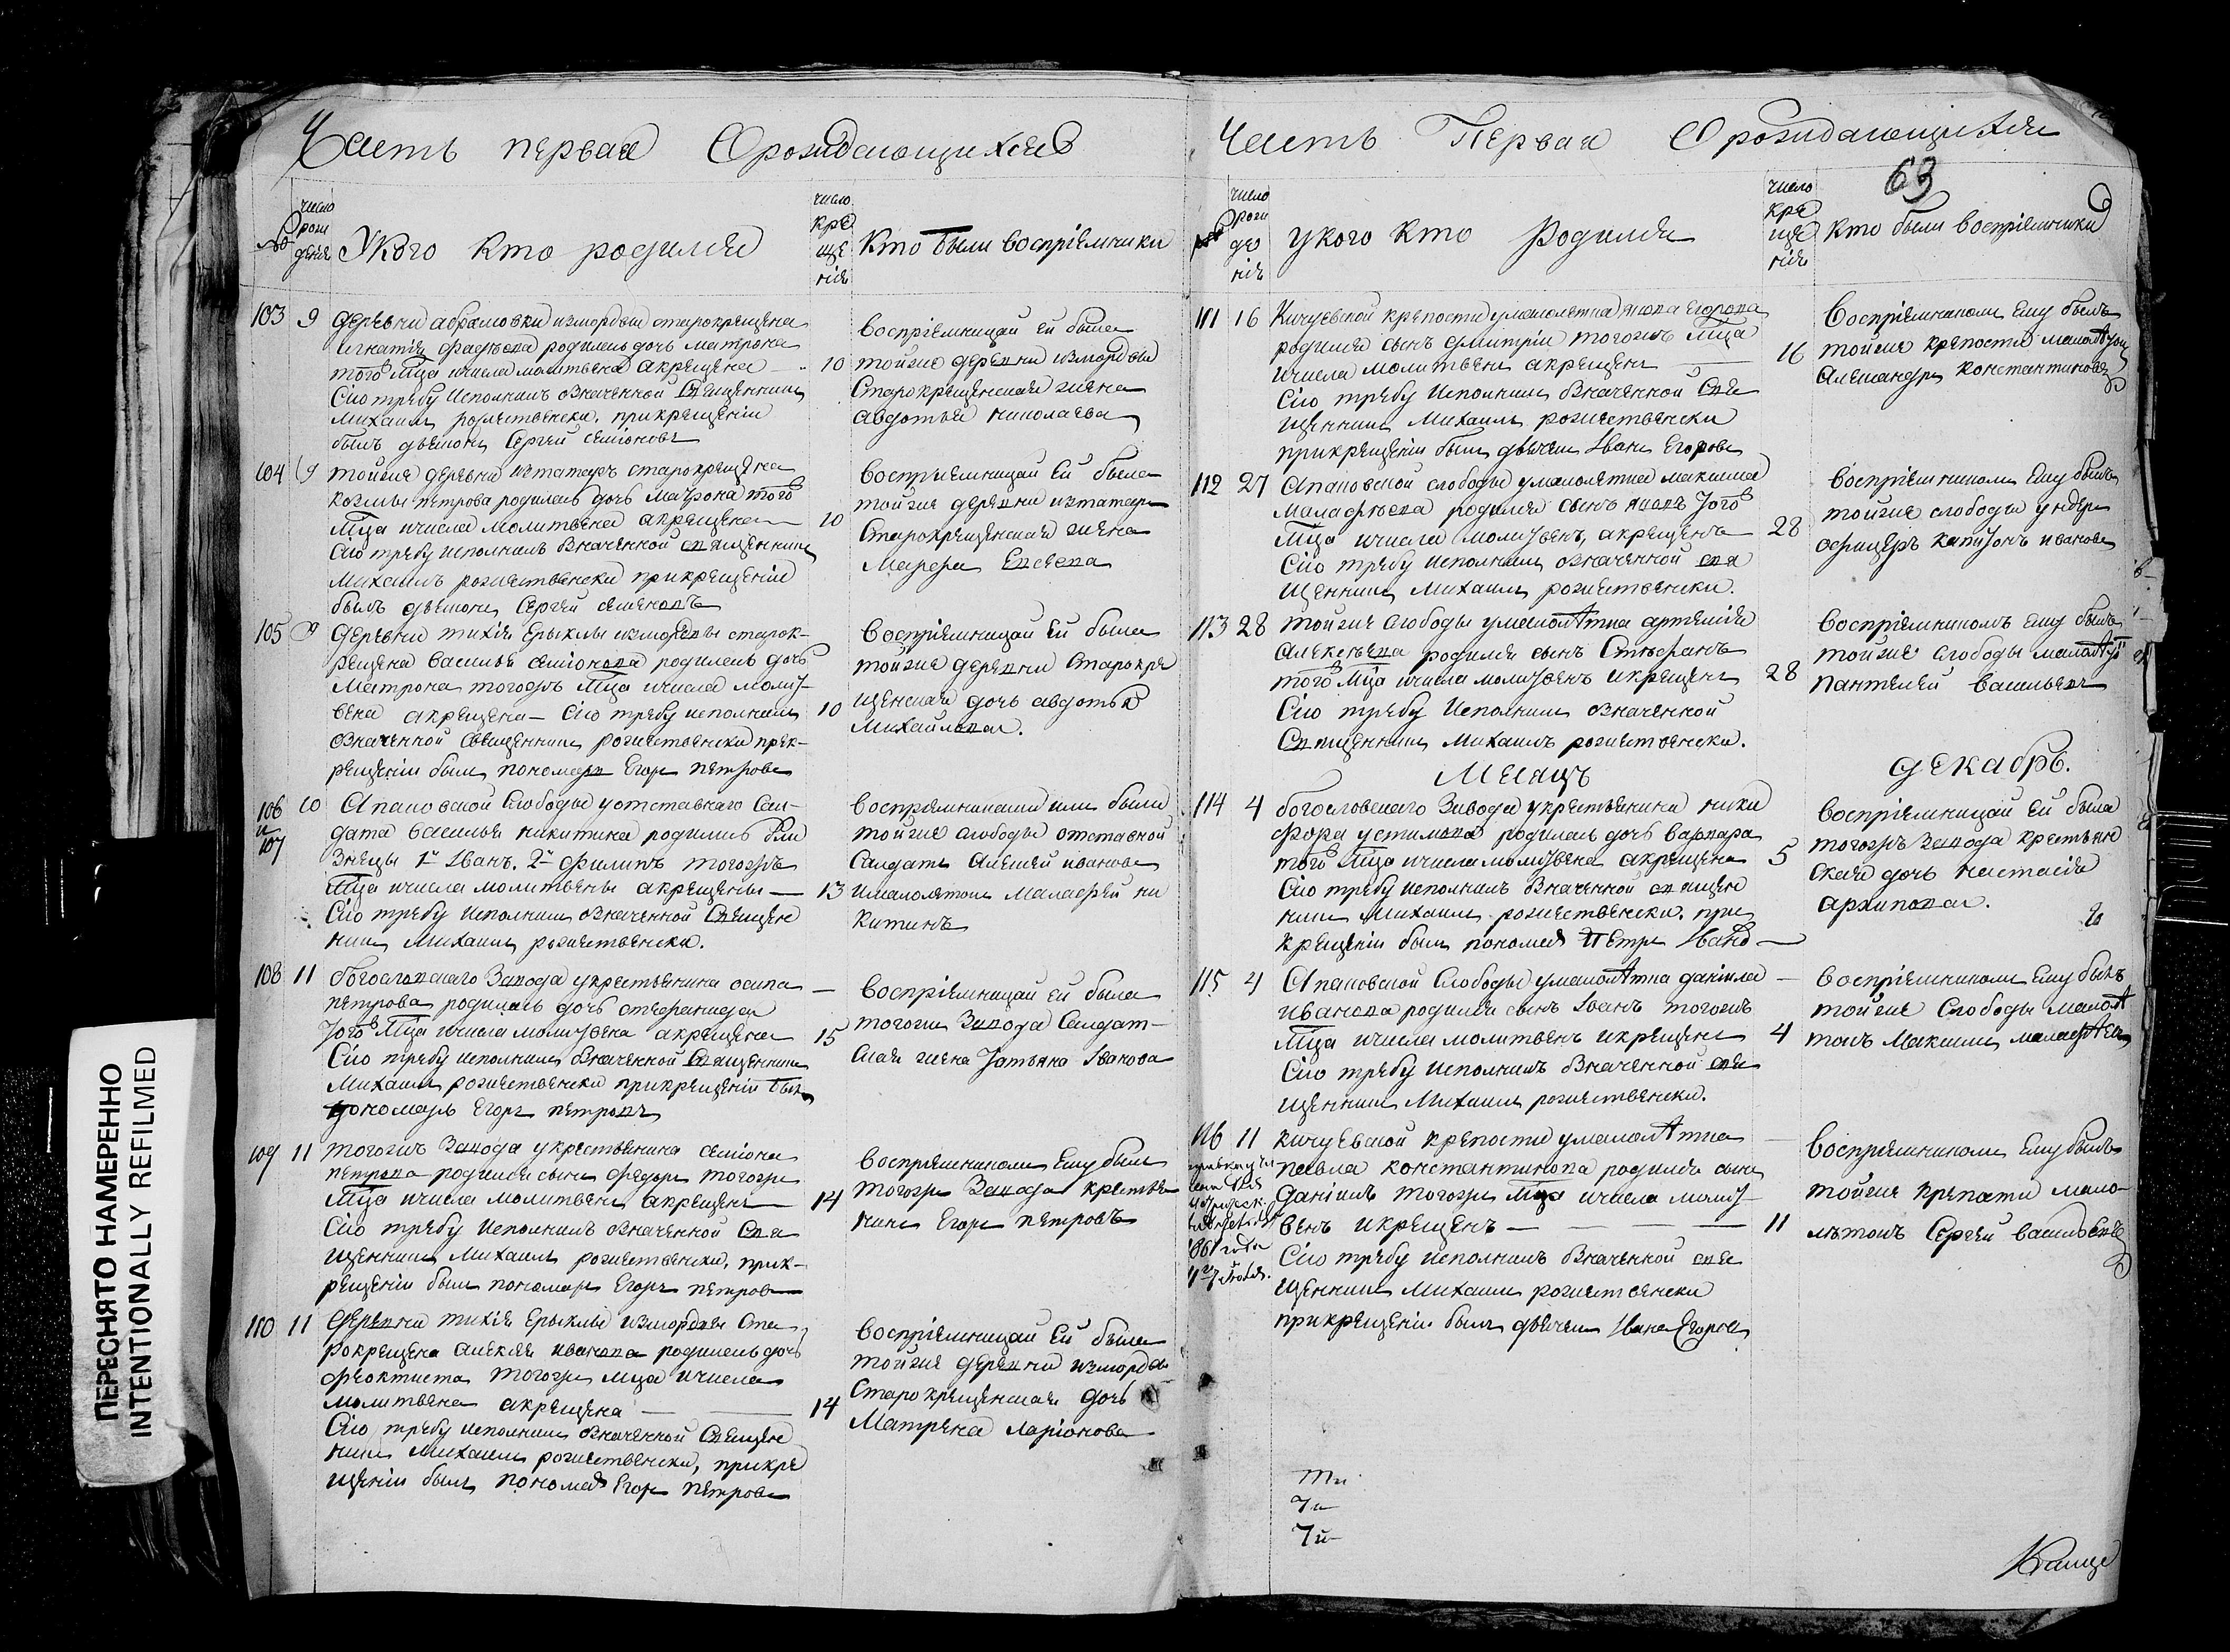 Часть первая О рождающихся
№
число рож дѣнія
У кого кто родился
число кре ще нія
Кто были воспріемники
103 9 деревни абрамовки измордвы старокрещена
игнатія фадѣева родилась дочь матрона
того мца ичисла молитвена акрещена 10
Сію требу исполнилъ означенной Священникъ
Михаилъ рожественски, прикрещеніи
былъ дьяконъ Сергѣй семіоновъ
Воспріемницай ей была
тойже деревни измордвы
Старокрещенская жена
авдотья николаева
104 9 тойже деревни изтатаръ старокрещена
козмы петрова родилась дочь матрона того
мца ичисла молитвена акрещена 10
Сію требу исполнилъ означенной священникъ
Михаилъ рожественски прикрещеніи
былъ дьяконъ Сергѣй семеновъ
Воспріемницай ей была
тойже деревни изтатаръ
Старокрещенская жена
105 9 деревни тихія Ерыклы измордвы старок-
рещена василья семіонова родилась дочь
Матрона тогожъ мца ичисла молит-
вена акрещена — Сію требу исполнилъ 10
означенной священникъ рожественски прик-
рещеніи былъ пономарь Егоръ петровъ
Воспріемницай ей была
тойже деревни Старокре
щенская дочь авдотья
Михайлова.
106 и 107 10 Апановской Слободы уотставнаго Сал-
дата василья никитина родились бли
знецы 1й Иванъ. 2й филипъ тогожъ
мца ичисла молитвены акрещены — 13
Сію требу исполнилъ означенной Священ
никъ Михаилъ рожественски.
Воспріемниками имъ были
тойже слободы отставной
Салдатъ Алексѣй ивановъ
ималолѣтокъ Малафѣй ни
китинъ
108 11 богословскаго Завода укрестьянина осипа
петрова родилась дочь стефанида
того мца ичисла молитвена акрещена 15
Сію требу исполнилъ означенной Священникъ
Михаилъ рожественски прикрещеніи былъ
пономарь Егоръ петровъ
Воспріемницай ей была
тогожъ Завода Салдат-
ская жена Татьяна Іванова
109 11 тогожъ Завода укрестьянина семіона
петрова родился сынъ федоръ тогожъ
мца ичисла молитвенъ акрещенъ 14
Сію требу исполнилъ означенной Свя
щенникъ Михаилъ рожественски, прик-
рещеніи былъ пономарь Егоръ петровъ
Воспріемникомъ ему былъ
тогожъ Завода крестья
нинъ Егоръ петровъ
110 11 деревни тихія Ерыклы измордвы Ста
рокрещена алексѣя иванова родилась дочь
феоктиста тогожъ мца ичисла
молитвена акрещена 14
Сію требу исполнилъ означенной Священ
никъ Михаилъ рожественски, прикре
щеніи былъ пономарь Егоръ петровъ
Воспріемницай ей была
тойже деревни измордвы
Старокрещенская дочь
Матрена ларіонова
Часть Первая О рождающихся
63
№
число рож де нія
у кого кто родился
число кре ще нія
кто были воспріемники
111 16 Кичуевской крепости умалолѣтка якова Егорова
родился сынъ дмитрій тогожъ мца
ичисла молитвенъ акрещенъ 16
Сію требу исполнилъ означенной Свя
щенникъ Михаилъ рожественски
прикрещеніи былъ дьячекъ Іванъ Егоровъ
Воспріемникомъ ему былъ
тойже крепости малолѣтокъ
Александръ константиновъ
112 27 Апановской слободы умалолѣтка максима
малафѣева родился сынъ яковъ того
мца ичисла молитвенъ, акрещенъ 28
Сію требу исполнилъ означенной свя
щенникъ Михаилъ рожественски.
воспріемникомъ ему былъ
тойже слободы ундеръ
офицеръ капитонъ ивановъ
113 28 тойже слободы умалолѣтка артемія
алексѣева родился сынъ Стефанъ
того мца ичисла молитвенъ икрещенъ 28
Сію требу исполнилъ означенной
Священникъ Михаилъ рожественски.
воспріемникомъ ему былъ
тойже слободы малолѣт
пантелѣй васильевъ
Месяцъ декабрь.
114 4 богословскаго Завода укрестьянина ники
фора устимова родилась дочь варвара
того мца ичисла молитвена акрещена 5
Сію требу исполнилъ означенной священ
никъ Михаилъ рожественски. при
крещеніи былъ пономарь Петръ Иванов
воспріемницай ей была
тогожъ завода крестьян
ская дочь настасія
архипова.
115 4 Апановской Слободы умалолѣтка даніила
иванова родился сынъ Іванъ тогожъ
мца ичисла молитвенъ икрещенъ 4
Сію требу исполнилъ означенной свя
щенникъ Михаилъ рожественски.
Воспріемникомъ ему былъ
тойже Слободы малолѣ
токъ Максимъ малафѣевъ
116 11 кичуевской крепости умалолѣтка
павла константинова родился сынъ
Даніилъ тогожъ мца ичисла молит-
венъ икрещенъ — 11
Сію требу исполнилъ означенной свя
щенникъ Михаилъ рожественски
прикрещеніи былъ дьячекъ Иванъ Егоровъ
воспріемникомъ ему былъ
тойже крепости мало-
лѣтокъ Сергѣй васильевъ
1861 года
ПЕРЕСНЯТО НАМЕРЕННО
INTENTIONALLY REFILMED